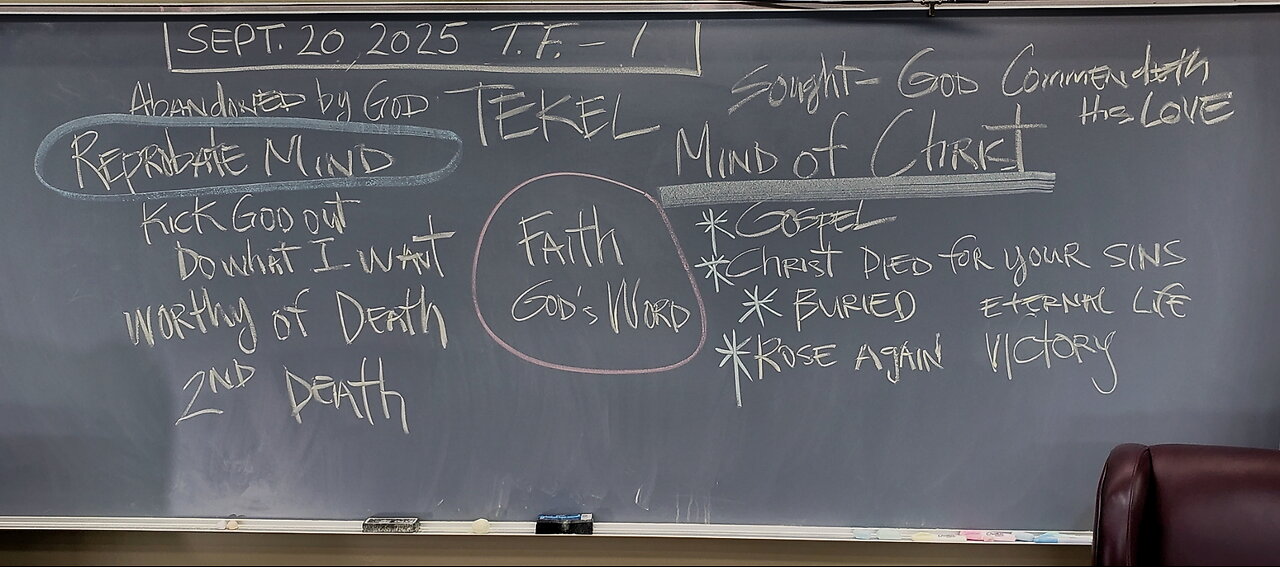 SEPT. 20, 2025 T.F. - 1
Abandoned by GOD
REPROBATE MIND
Kick GOD out
Do what I want
Worthy of Death
2ND DEATH
TEKEL
Faith
GOD'S WORD
Sought - GOD Commendeth
His LOVE
MIND of CHRIST
* GOSPEL
* Christ DIED for your SINS
* BURIED ETERNAL LIFE
* ROSE AGAIN VICTORY